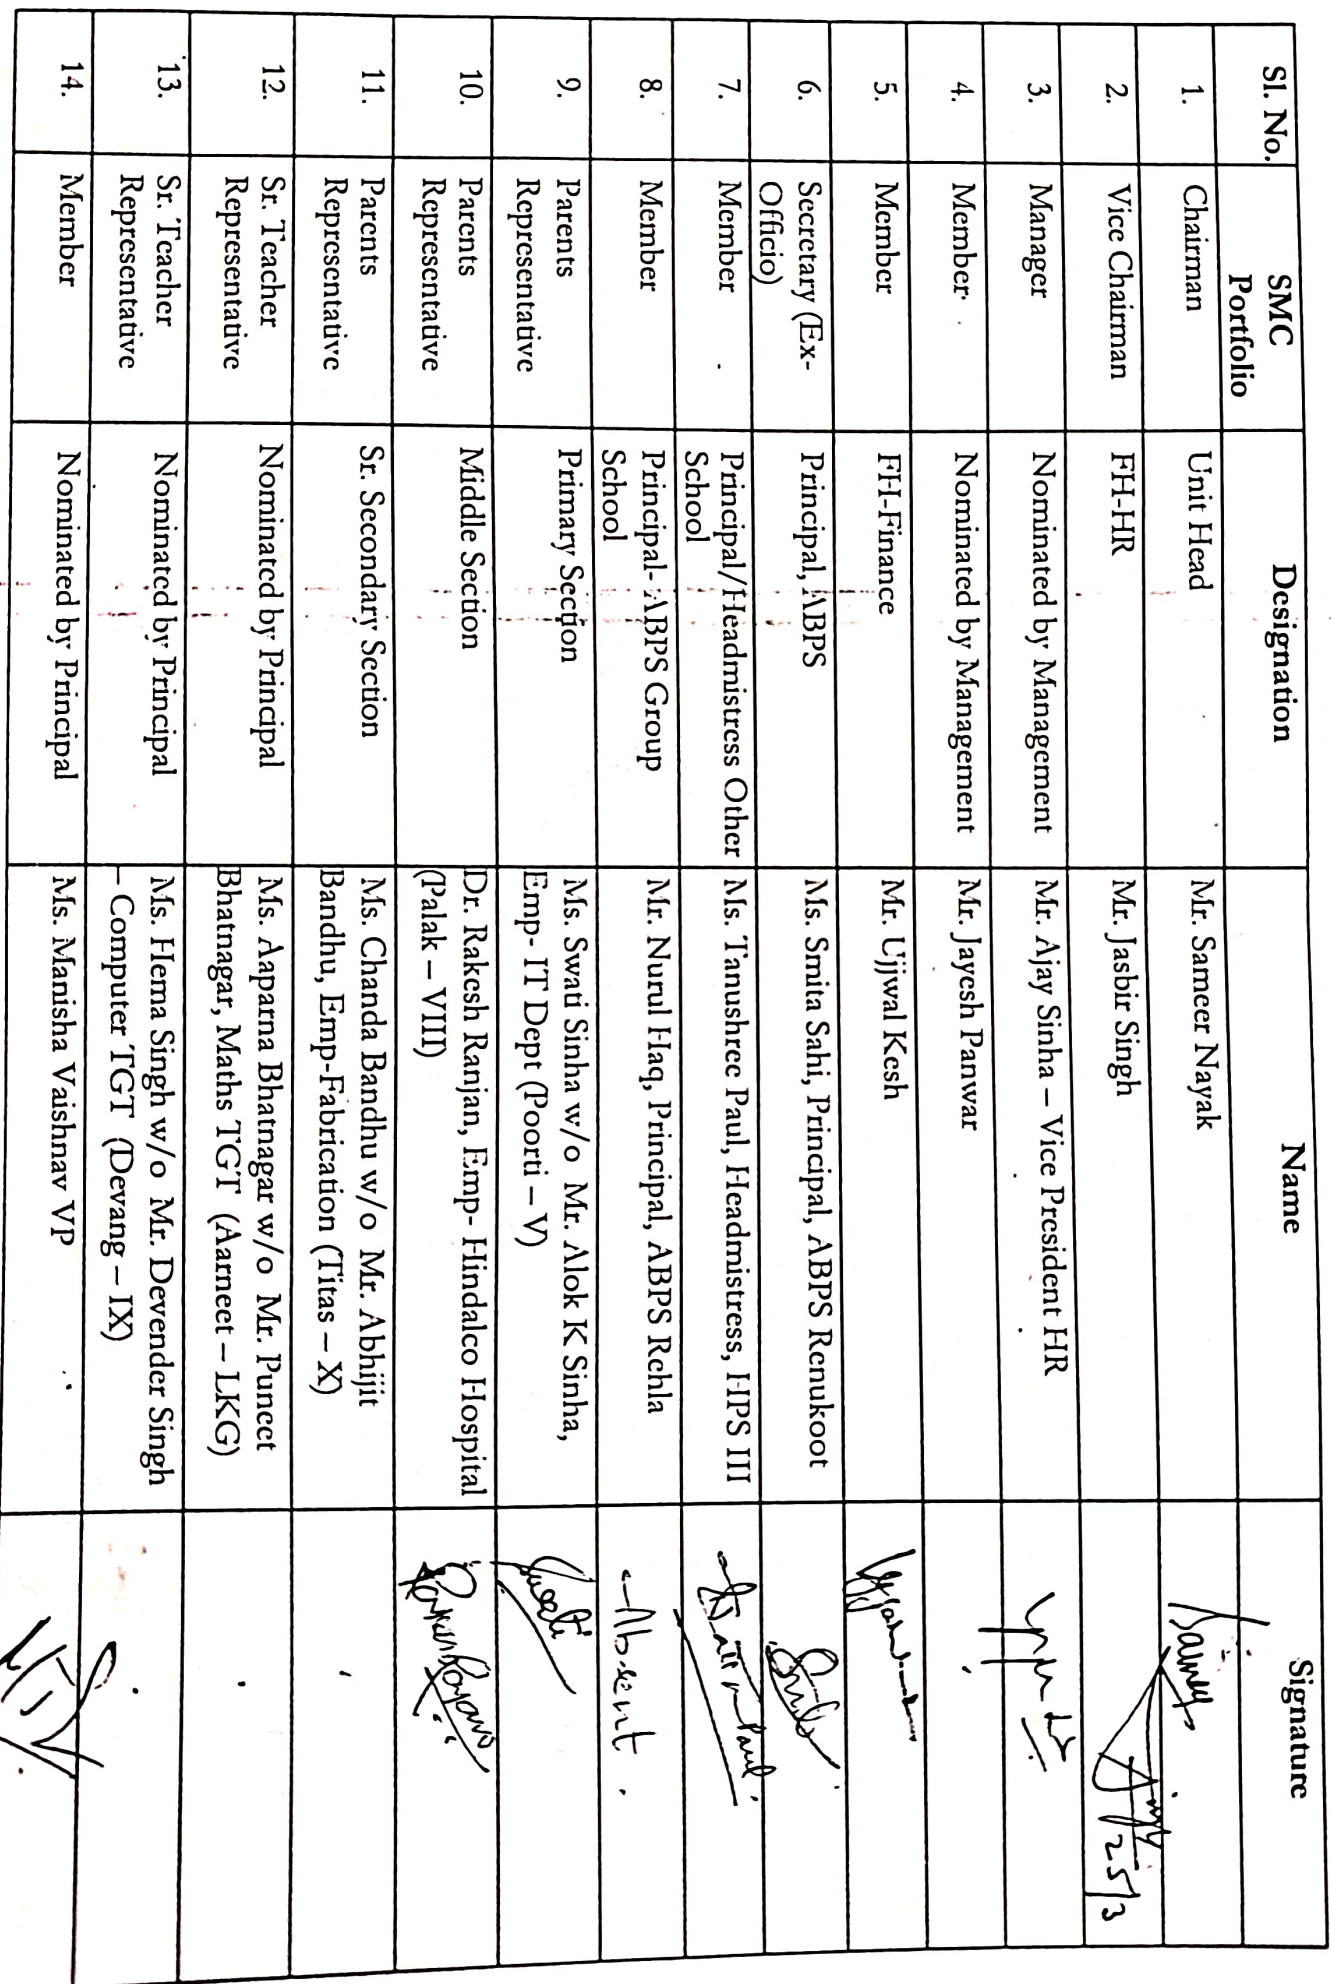 Sl. No.
SMC
Portfolio
Designation
Name
Signature
1.
Chairman
Unit Head
Mr. Sameer Nayak
2.
Vice Chairman
FH-HR
Mr. Jasbir Singh
25/3
3.
Manager
Nominated by Management
Mr. Ajay Sinha – Vice President HR
4.
Member
Nominated by Management
Mr. Jayesh Panwar
5.
Member
FH-Finance
Mr. Ujjwal Kesh
6.
Secretary (Ex-
Officio)
Principal, ABPS
Ms. Smita Sahi, Principal, ABPS Renukoot
7.
Member
Principal/Headmistress Other
School
Ms. Tanushree Paul, Headmistress, HPS III
8.
Member
Principal- ABPS Group
School
Mr. Nurul Haq, Principal, ABPS Rehla
Absent.
9.
Parents
Representative
Primary Section
Ms. Swati Sinha w/o Mr. Alok K Sinha,
Emp- IT Dept (Poorti – V)
Swati
10.
Parents
Representative
Middle Section
Dr. Rakesh Ranjan, Emp- Hindalco Hospital
(Palak – VIII)
11.
Parents
Representative
Sr. Secondary Section
Ms. Chanda Bandhu w/o Mr. Abhijit
Bandhu, Emp-Fabrication (Titas – X)
12.
Sr. Teacher
Representative
Nominated by Principal
Ms. Aaparna Bhatnagar w/o Mr. Puneet
Bhatnagar, Maths TGT (Aarneet – LKG)
13.
Sr. Teacher
Representative
Nominated by Principal
Ms. Hema Singh w/o Mr. Devender Singh
– Computer TGT (Devang – IX)
14.
Member
Nominated by Principal
Ms. Manisha Vaishnav VP